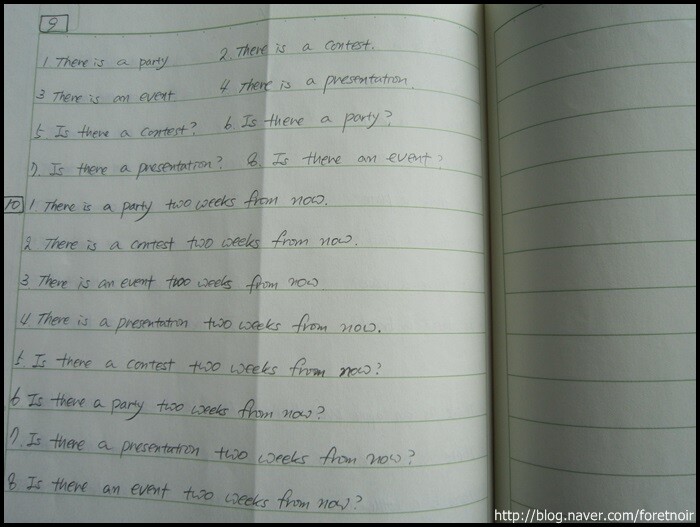 9
1 There is a party 2. There is a contest.
3 There is an event 4 There is a presentation.
5. Is there a contest? 6. Is there a party?
7. Is there a presentation? 8. Is there an event?
10 1 There is a party two weeks from now.
2 There is a contest two weeks from now.
3 There is an event two weeks from now
4. There is a presentation two weeks from now.
5. Is there a contest two weeks from now?
6 Is there a party two weeks from now?
7. Is there a presentation two weeks from now?
8 Is there an event two weeks from now?
http://blog.naver.com/foretnoir